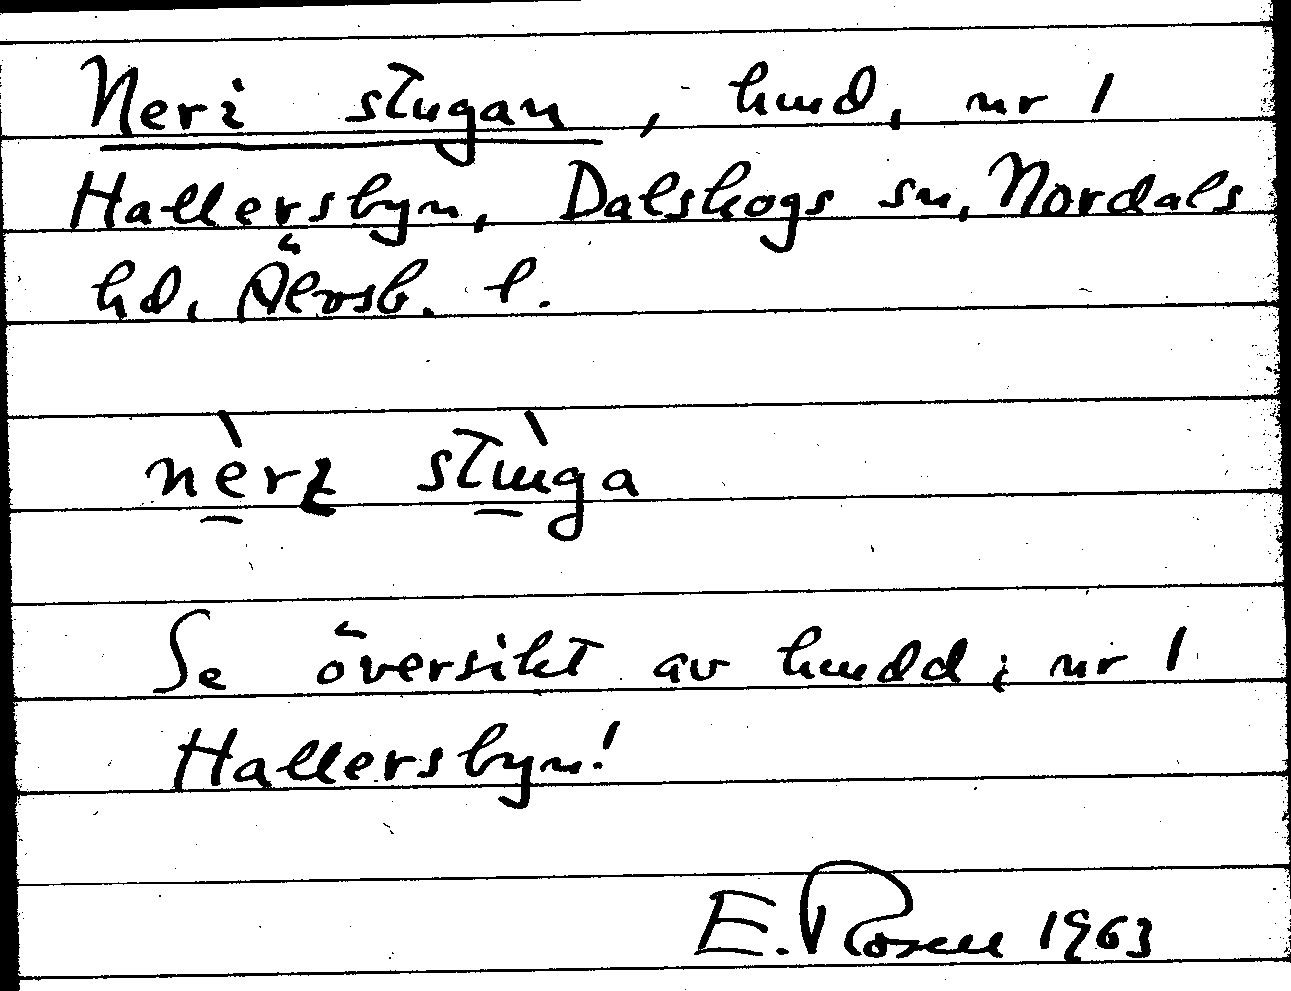 Neri stugan, hmd, nr 1
Hallersbyn, Dalskogs sn, Nordals
hd, Älvsb. l.
nèrɩ stùga
Se översikt av hmdd; nr 1
Hallersbyn!
E. Rosen 1963